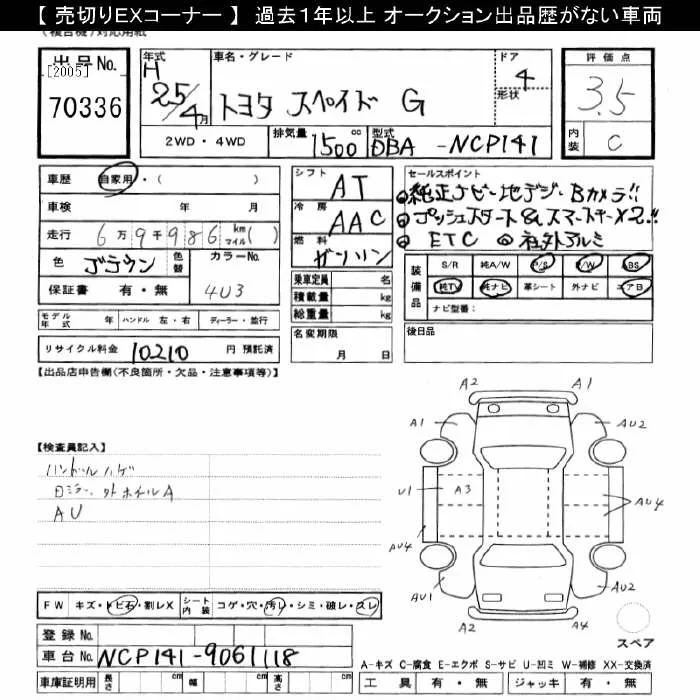 【 売切りEXコーナー 】 過去1年以上 オークション出品歴がない車両
出品No.
[2005]
70336
年式
H
25/4月
車名・グレード
トヨタ スペイド G
ドア
4
形状
評価点
3.5
内装
C
2WD・4WD
排気量
1500 cc
型式
DBA -NCP141
車歴 自家用・( )
車検 年 月
走行 6万9千986 km マイル( )
色 ブラウン 色替
カラーNo. 4U3
保証書 有・無
モデル年式 年 ハンドル 左・右 ディーラー・並行
リサイクル料金 10210 円 預託済
シフト AT
冷房 AAC
燃料 ガソリン
乗車定員 名
積載量 kg
総重量 kg
名変期限 月 日
セールスポイント
純正ナビ・地デジ・Bカメラ!!
プッシュスタート&スマートキーX2!!
ETC 社外アルミ
装備品
S/R 純A/W P/S P/W ABS
純TV 純ナビ 革シート 外ナビ エアB
ナビ型番:
後日品
【出品店申告欄(不良箇所・欠品・注意事項等)】
【検査員記入】
ハンドルハゲ
日ミラー、外ホイルA
AU
A2 A1
A1 AU2
U1 A3 AU4
AU4
AU1 AU2
A2 A4
スペア
FW キズ・トビ石・割レX シート内装 コゲ・穴・汚レ・シミ・破レ・スレ
登録No.
車台No. NCP141-9061118
車庫証明用 長さ cm 幅 cm 高さ cm
A-キズ C-腐食 E-エクボ S-サビ U-凹ミ W-補修 XX-交換済
工具 有・無 ジャッキ 有・無